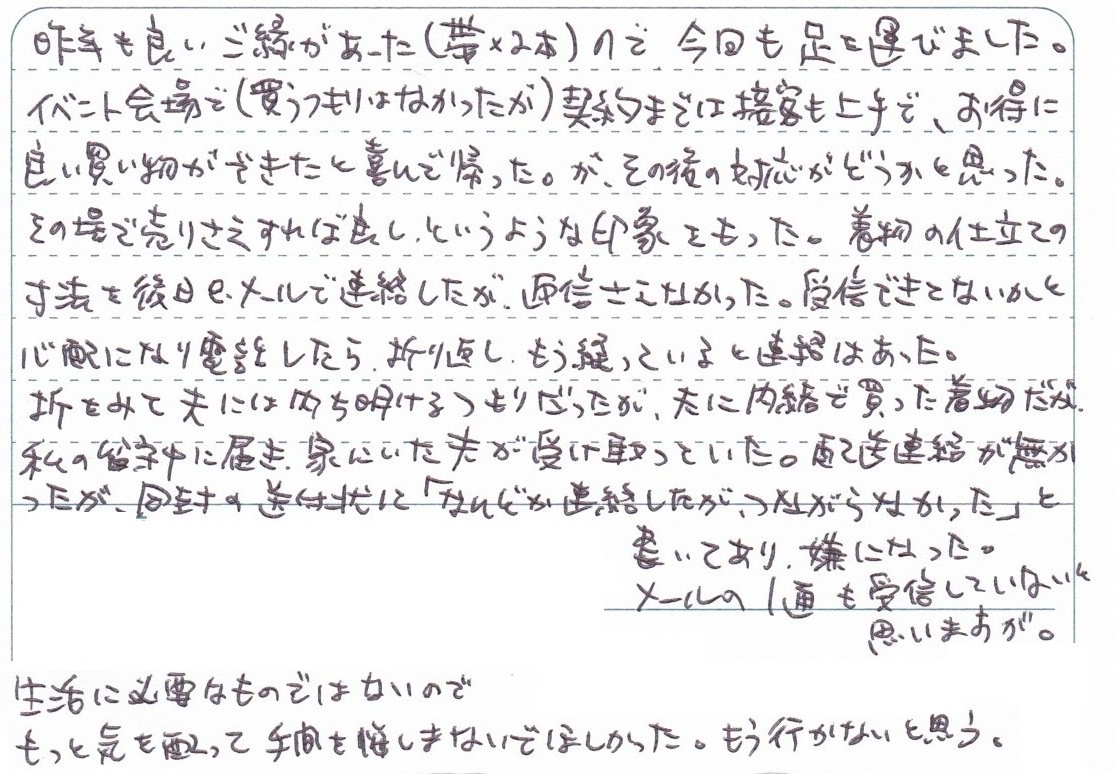 昨年も良いご縁があった(帯×2本)ので 今回も足を運びました。
イベント会場で(買うつもりはなかったが)契約までは接客も上手で、お得に
良い買い物ができたと喜んで帰った。が、その後の対応がどうかと思った。
その場で売りさえすれば良し、というような印象をもった。着物の仕立ての
寸法を後日e・メールで連絡したが、返信さえなかった。受信できてないかと
心配になり電話をしたら、折り返し、もう縫っていると連絡はあった。
折をみて夫には内ち明けるつもりだったが、夫に内緒で買った着物だが、
私の留守中に届き、家にいた夫が受け取っていた。配送連絡が無か
ったが、同封の送付状に「なんどか連絡したが、つながらなかった」と
書いてあり、嫌になった。
メールの1通も受信していないと
思いますが。
生活に必要なものではないので
もっと気を配って手間を惜しまないでほしかった。もう行かないと思う。